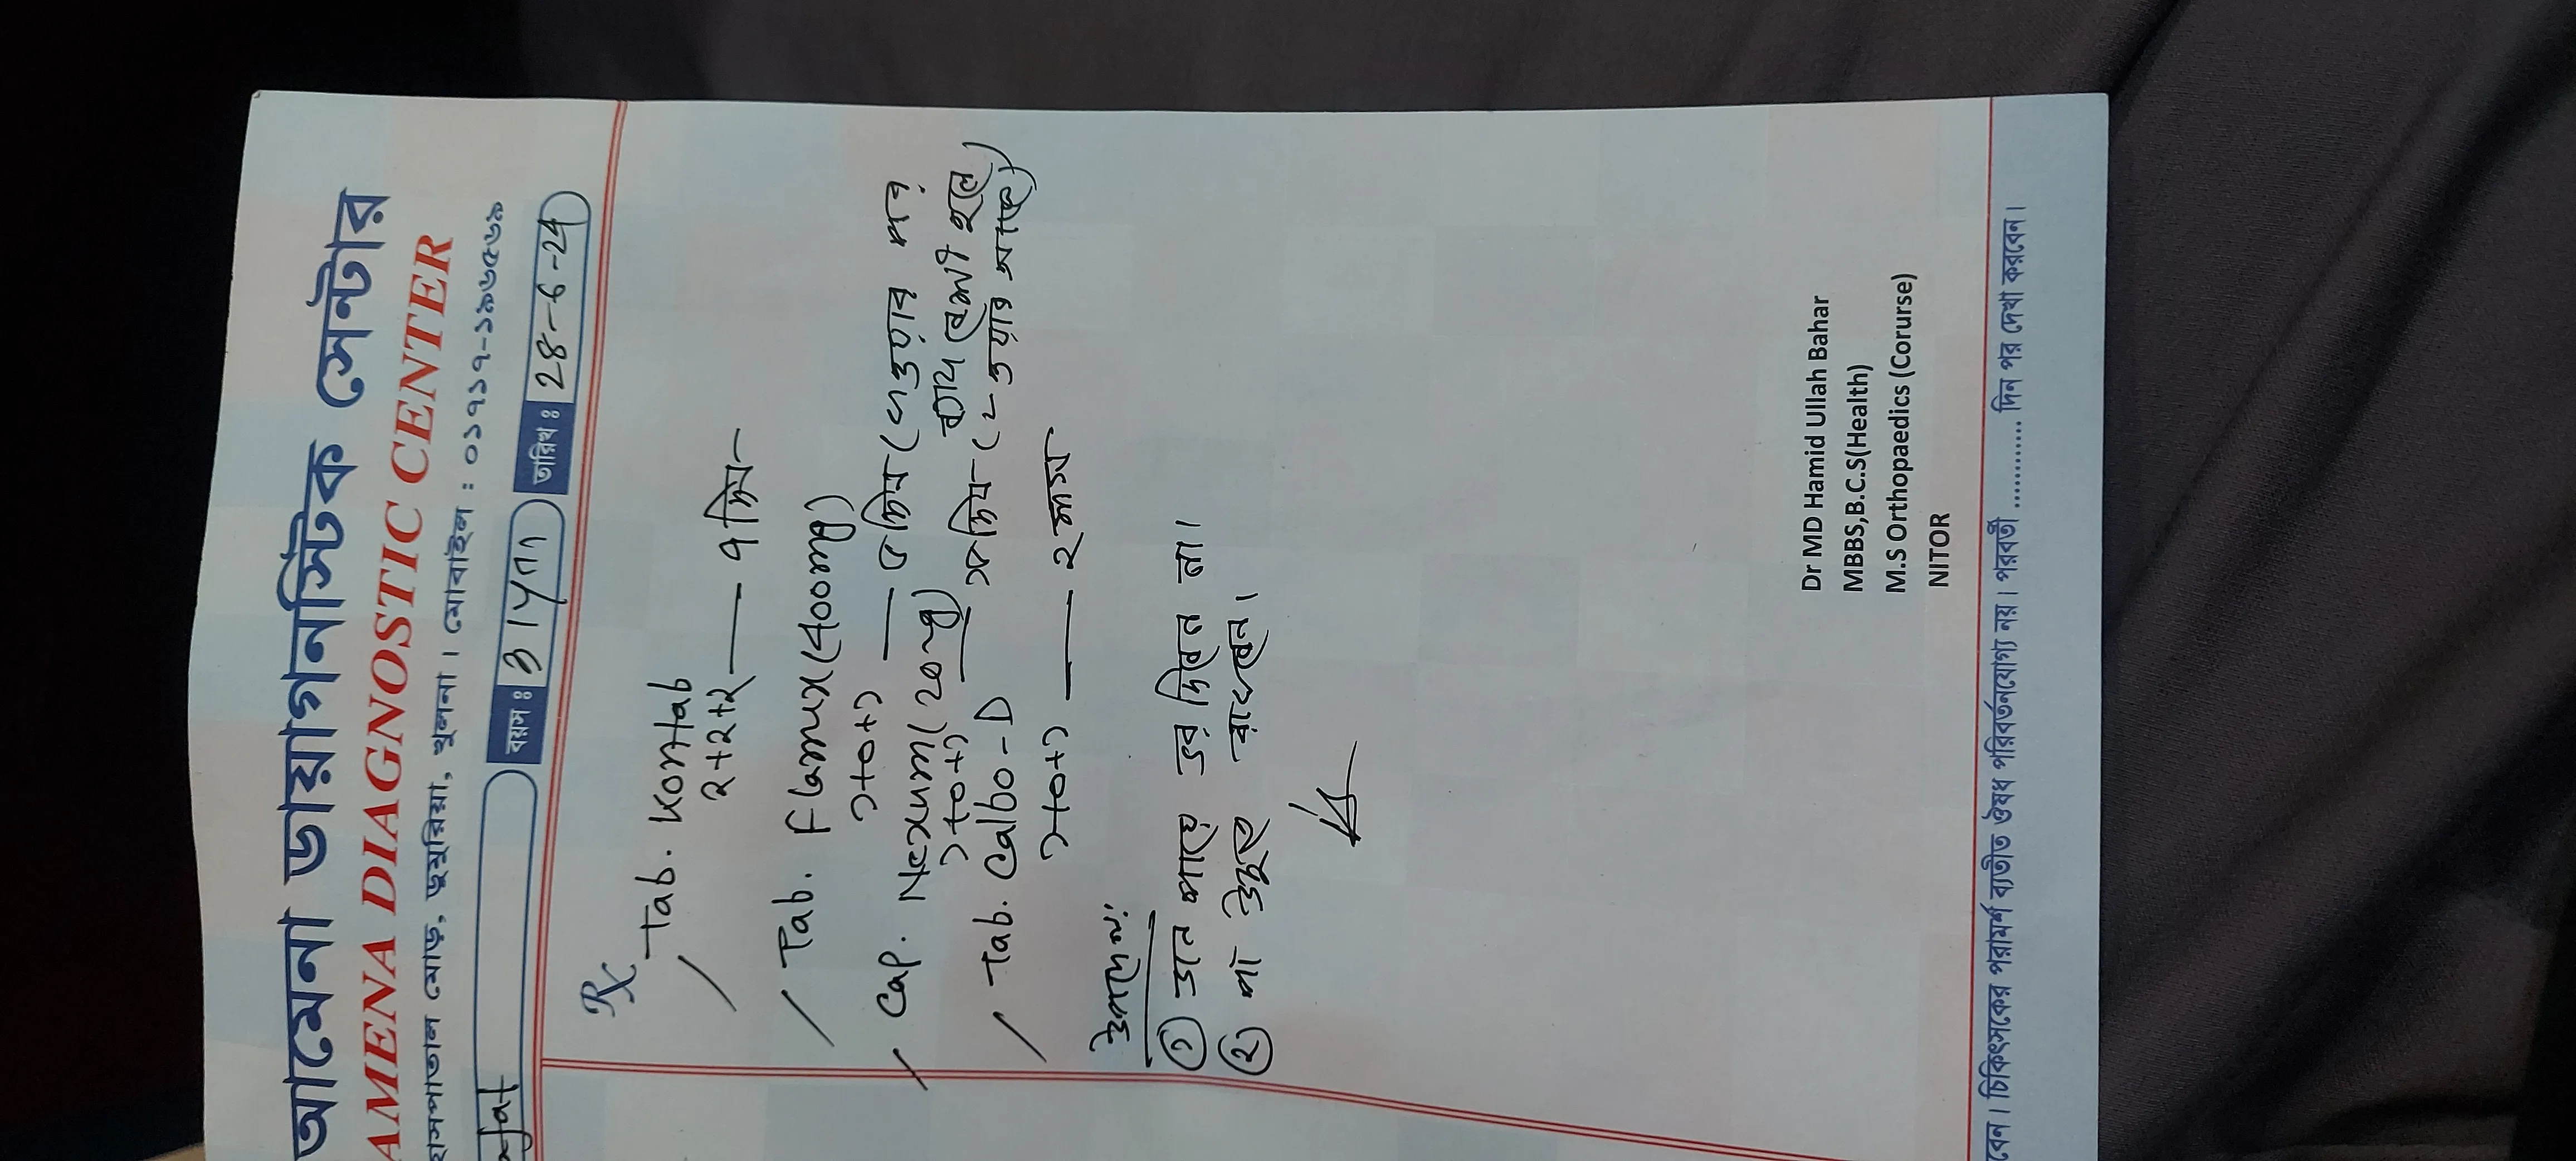 আমেনা ডায়াগনস্টিক সেন্টার
AMENA DIAGNOSTIC CENTER
হাসপাতাল মোড়, ডুমুরিয়া, খুলনা। মোবাইল : ০১৭১৭-১৯৬৫৬৯
বয়স : 31 yrs তারিখ : 28-6-24
Rx
Tab.
২+২+২ — ৭ দিন
Tab. Flamux (400mg)
১+০+১ — ৫ দিন (
ব্যথা বেশী হলে
Cap. Nexum (20mg)
১+০+১ — দিন (
Tab. Calbo-D
১+০+১ — ২ মাস
উপদেশ:
① ডান পায়ে ভর দিবেন না।
② পা উঁচুতে রাখবেন।
Dr MD Hamid Ullah Bahar
MBBS,B.C.S(Health)
M.S Orthopaedics (Corurse)
NITOR
বেন। চিকিৎসকের পরামর্শ ব্যতীত ঔষধ পরিবর্তনযোগ্য নয়। পরবর্তী ............ দিন পর দেখা করবেন।